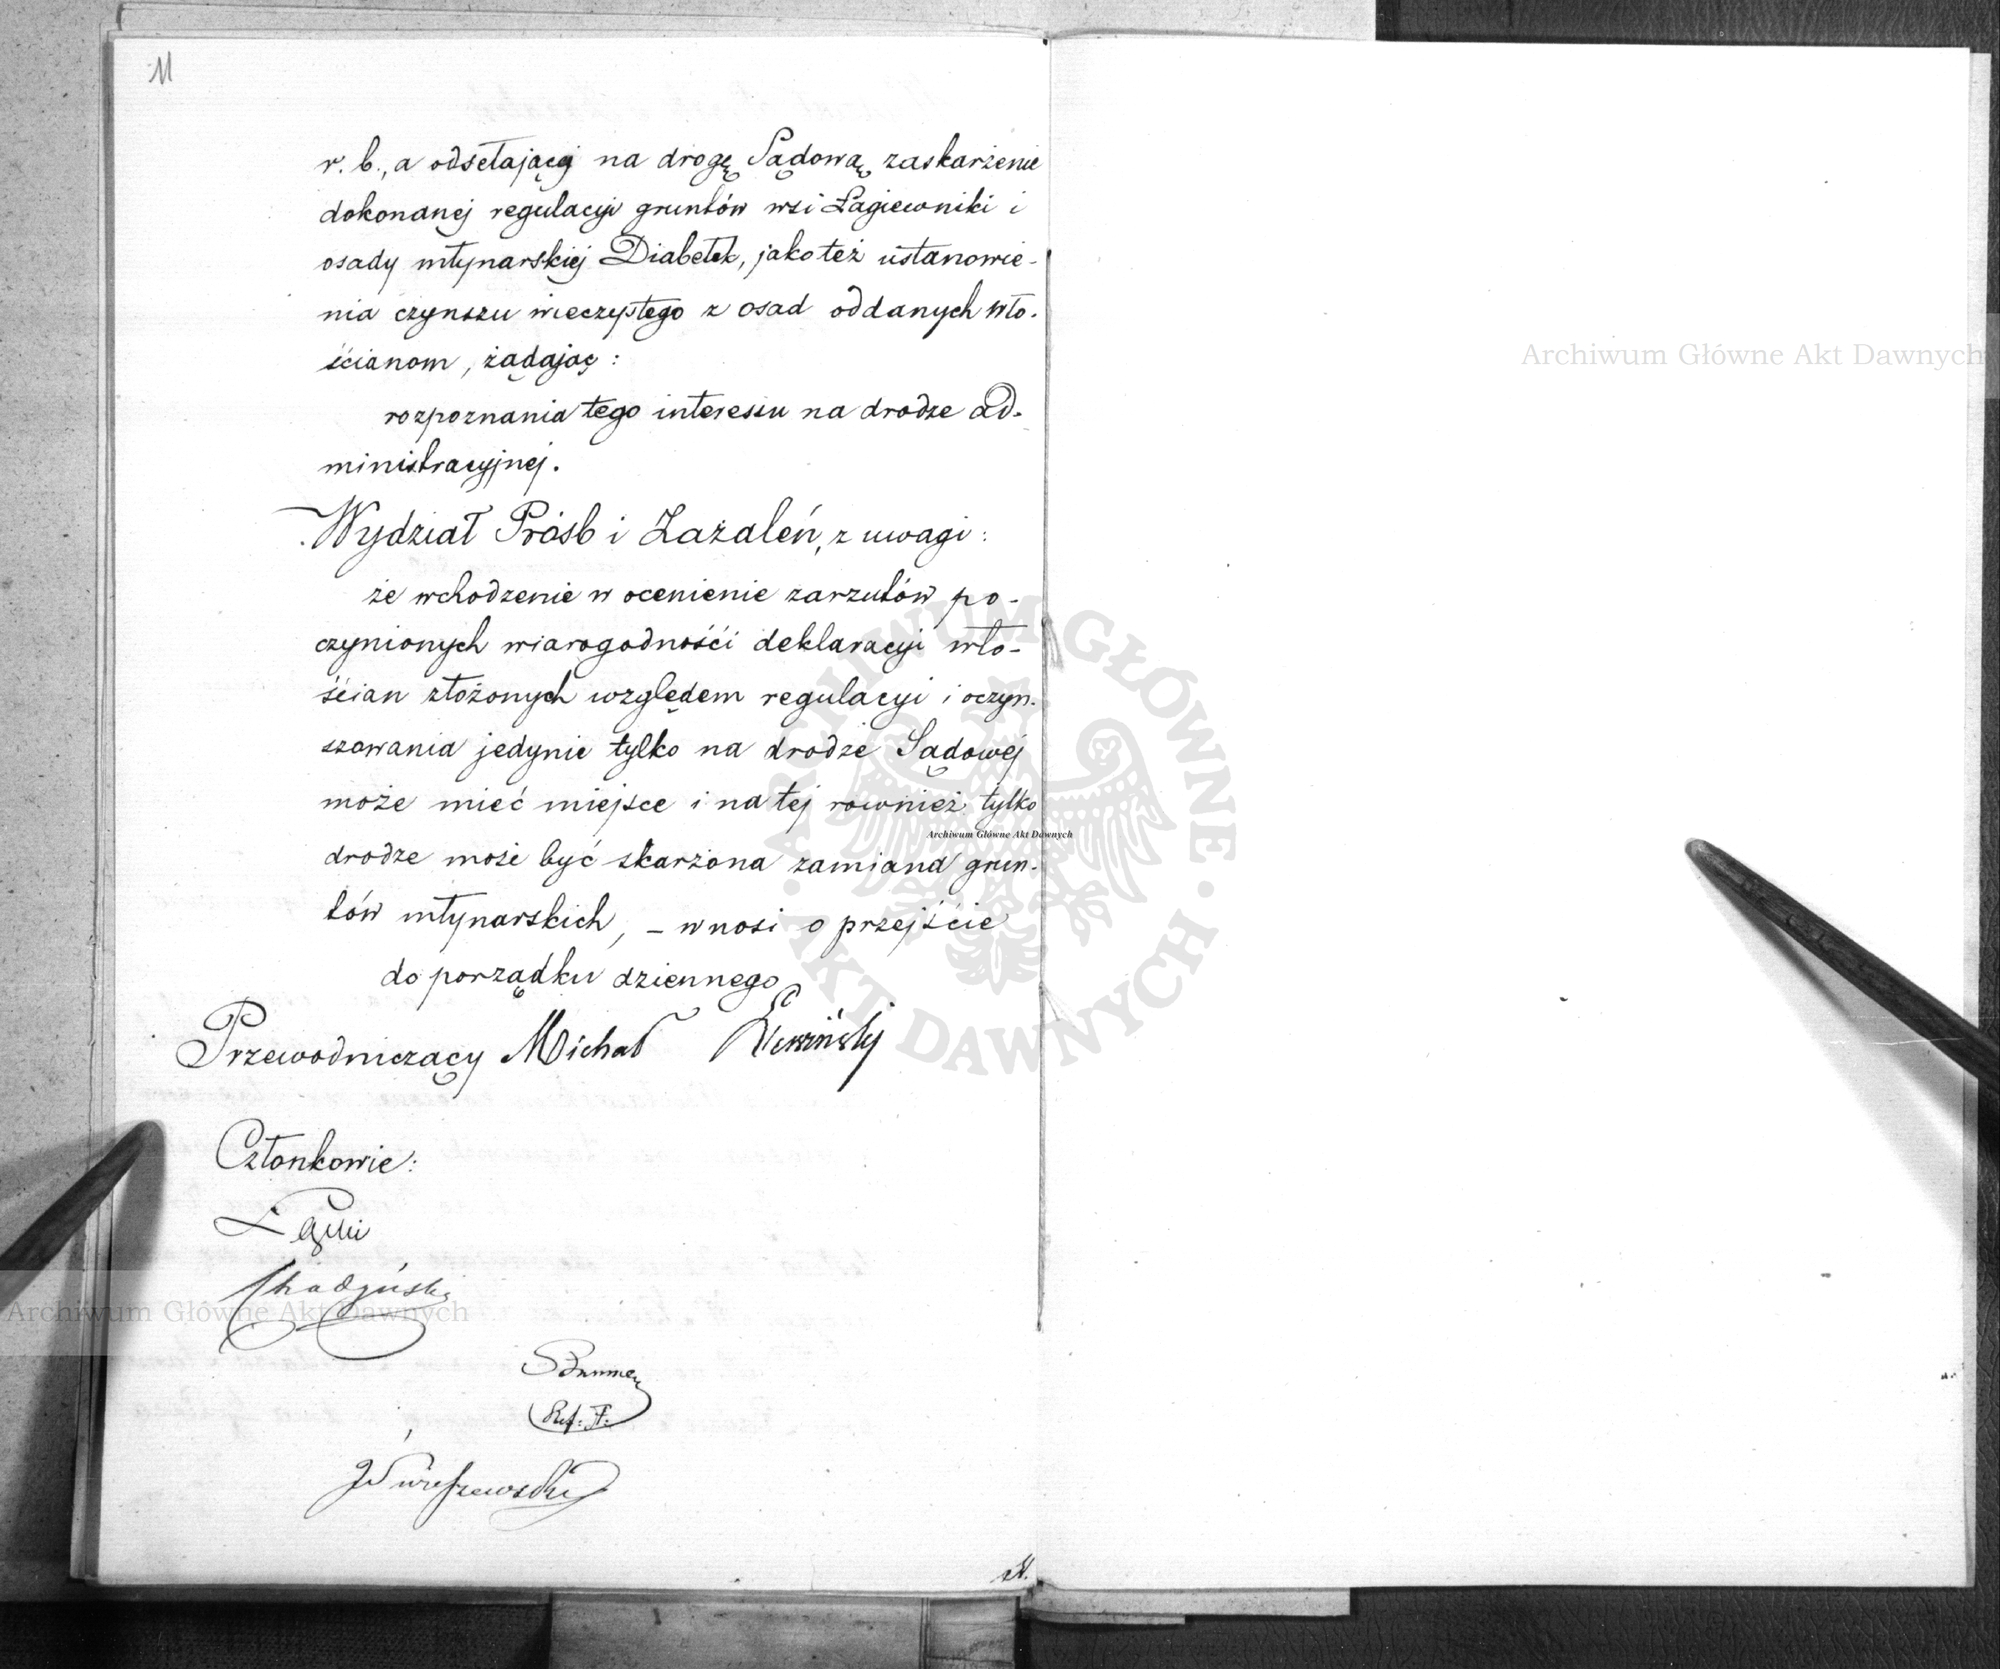 11
r. b., a odsełającej na drogę Sądową zaskarżenie
dokonanej regulacyi gruntów wsi Łagiewniki i
osady młynarskiej Diabełek, jako też ustanowie-
nia czynszu wieczystego z osad oddanych wło-
ścianom, żądając:
rozpoznania tego interessu na drodze ad-
ministracyjnej.
Wydział Próśb i Zażaleń, z uwagi:
że wchodzenie w ocenienie zarzutów po-
czynionych wiarogodnośći deklaracyi wło-
śćian złożonych względem regulacyi i oczyn-
szowania jedynie tylko na drodze Sądowej
może mieć miejsce i na tej rownież tylko
drodze może być skarżona zamiana grun-
tów młynarskich, – wnosi o przejśćie
do porządku dziennego
Przewodniczący Michał
Członkowie:
Łąski
Ref:
Archiwum Główne Akt Dawnych
Archiwum Główne Akt Dawnych
Archiwum Główne Akt Dawnych
ARCHIWUM GŁÓWNE AKT DAWNYCH